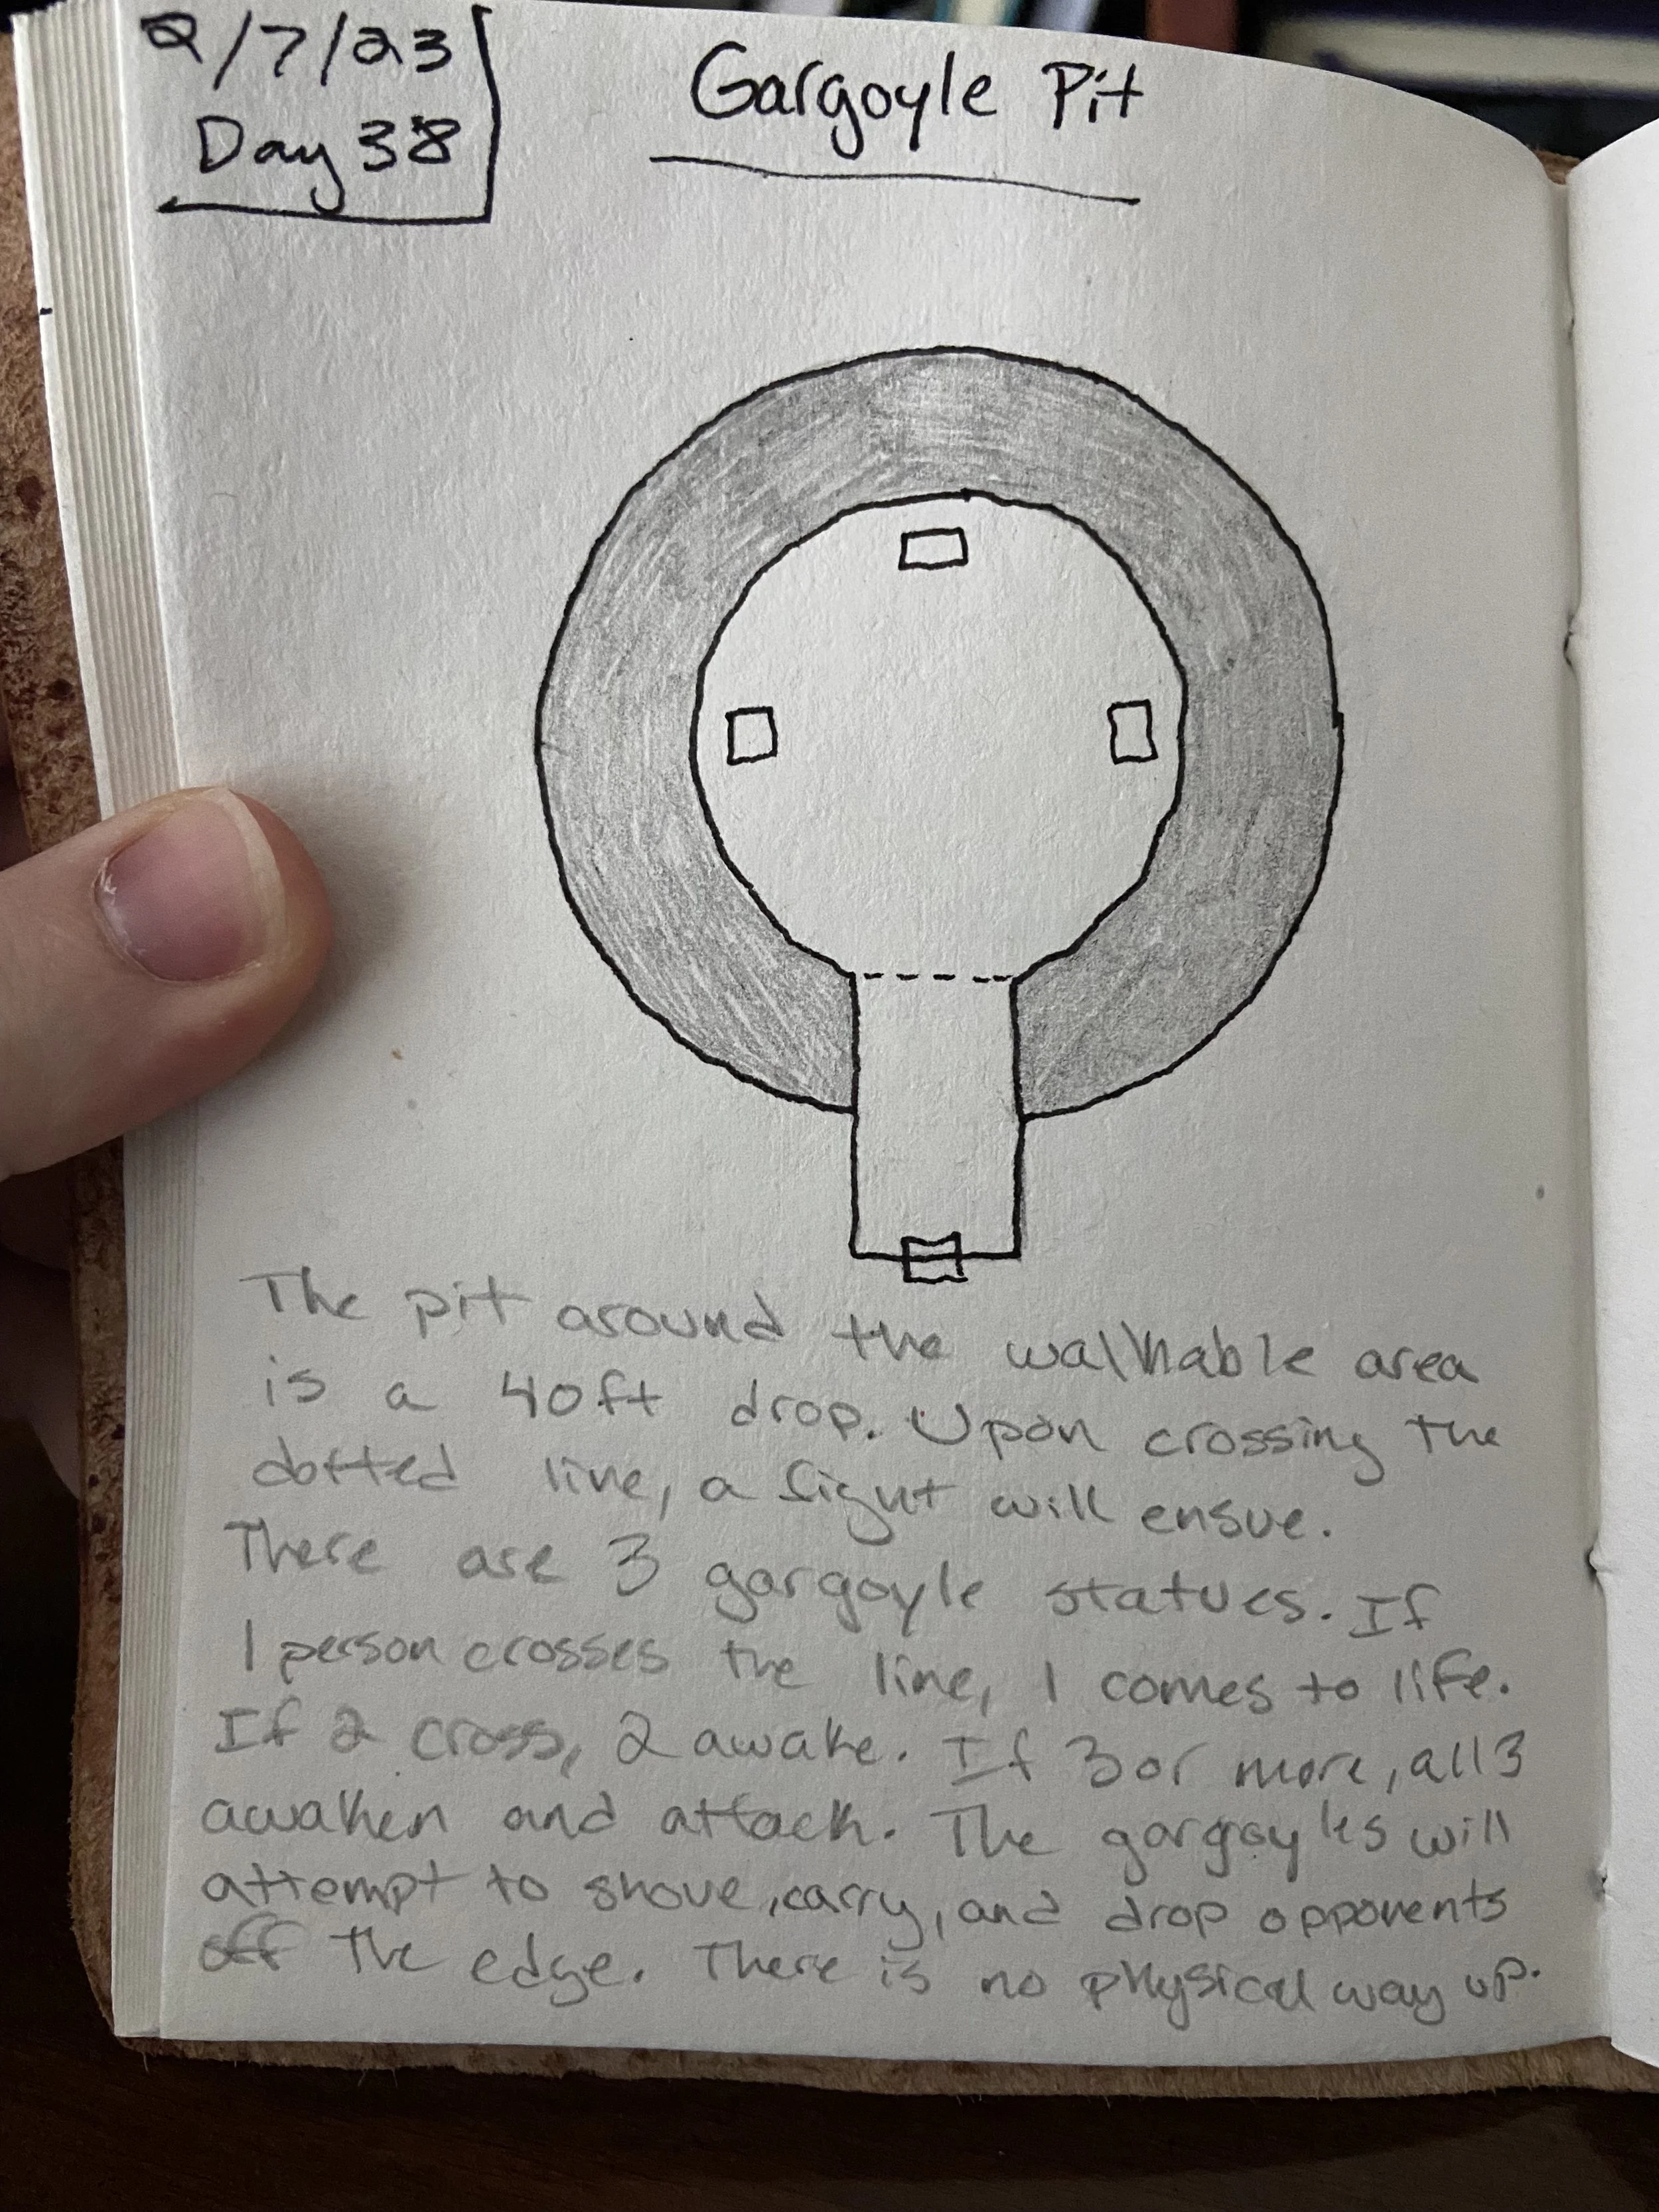 2/7/23
Day 38
Gargoyle Pit
The pit around the walkable area
is a 40ft drop. Upon crossing the
dotted line, a fight will ensue.
There are 3 gargoyle statues. If
1 person crosses the line, 1 comes to life.
If 2 cross, 2 awake. If 3 or more, all 3
awaken and attack. The gargoyles will
attempt to shove, carry, and drop opponents
off the edge. There is no physical way up.